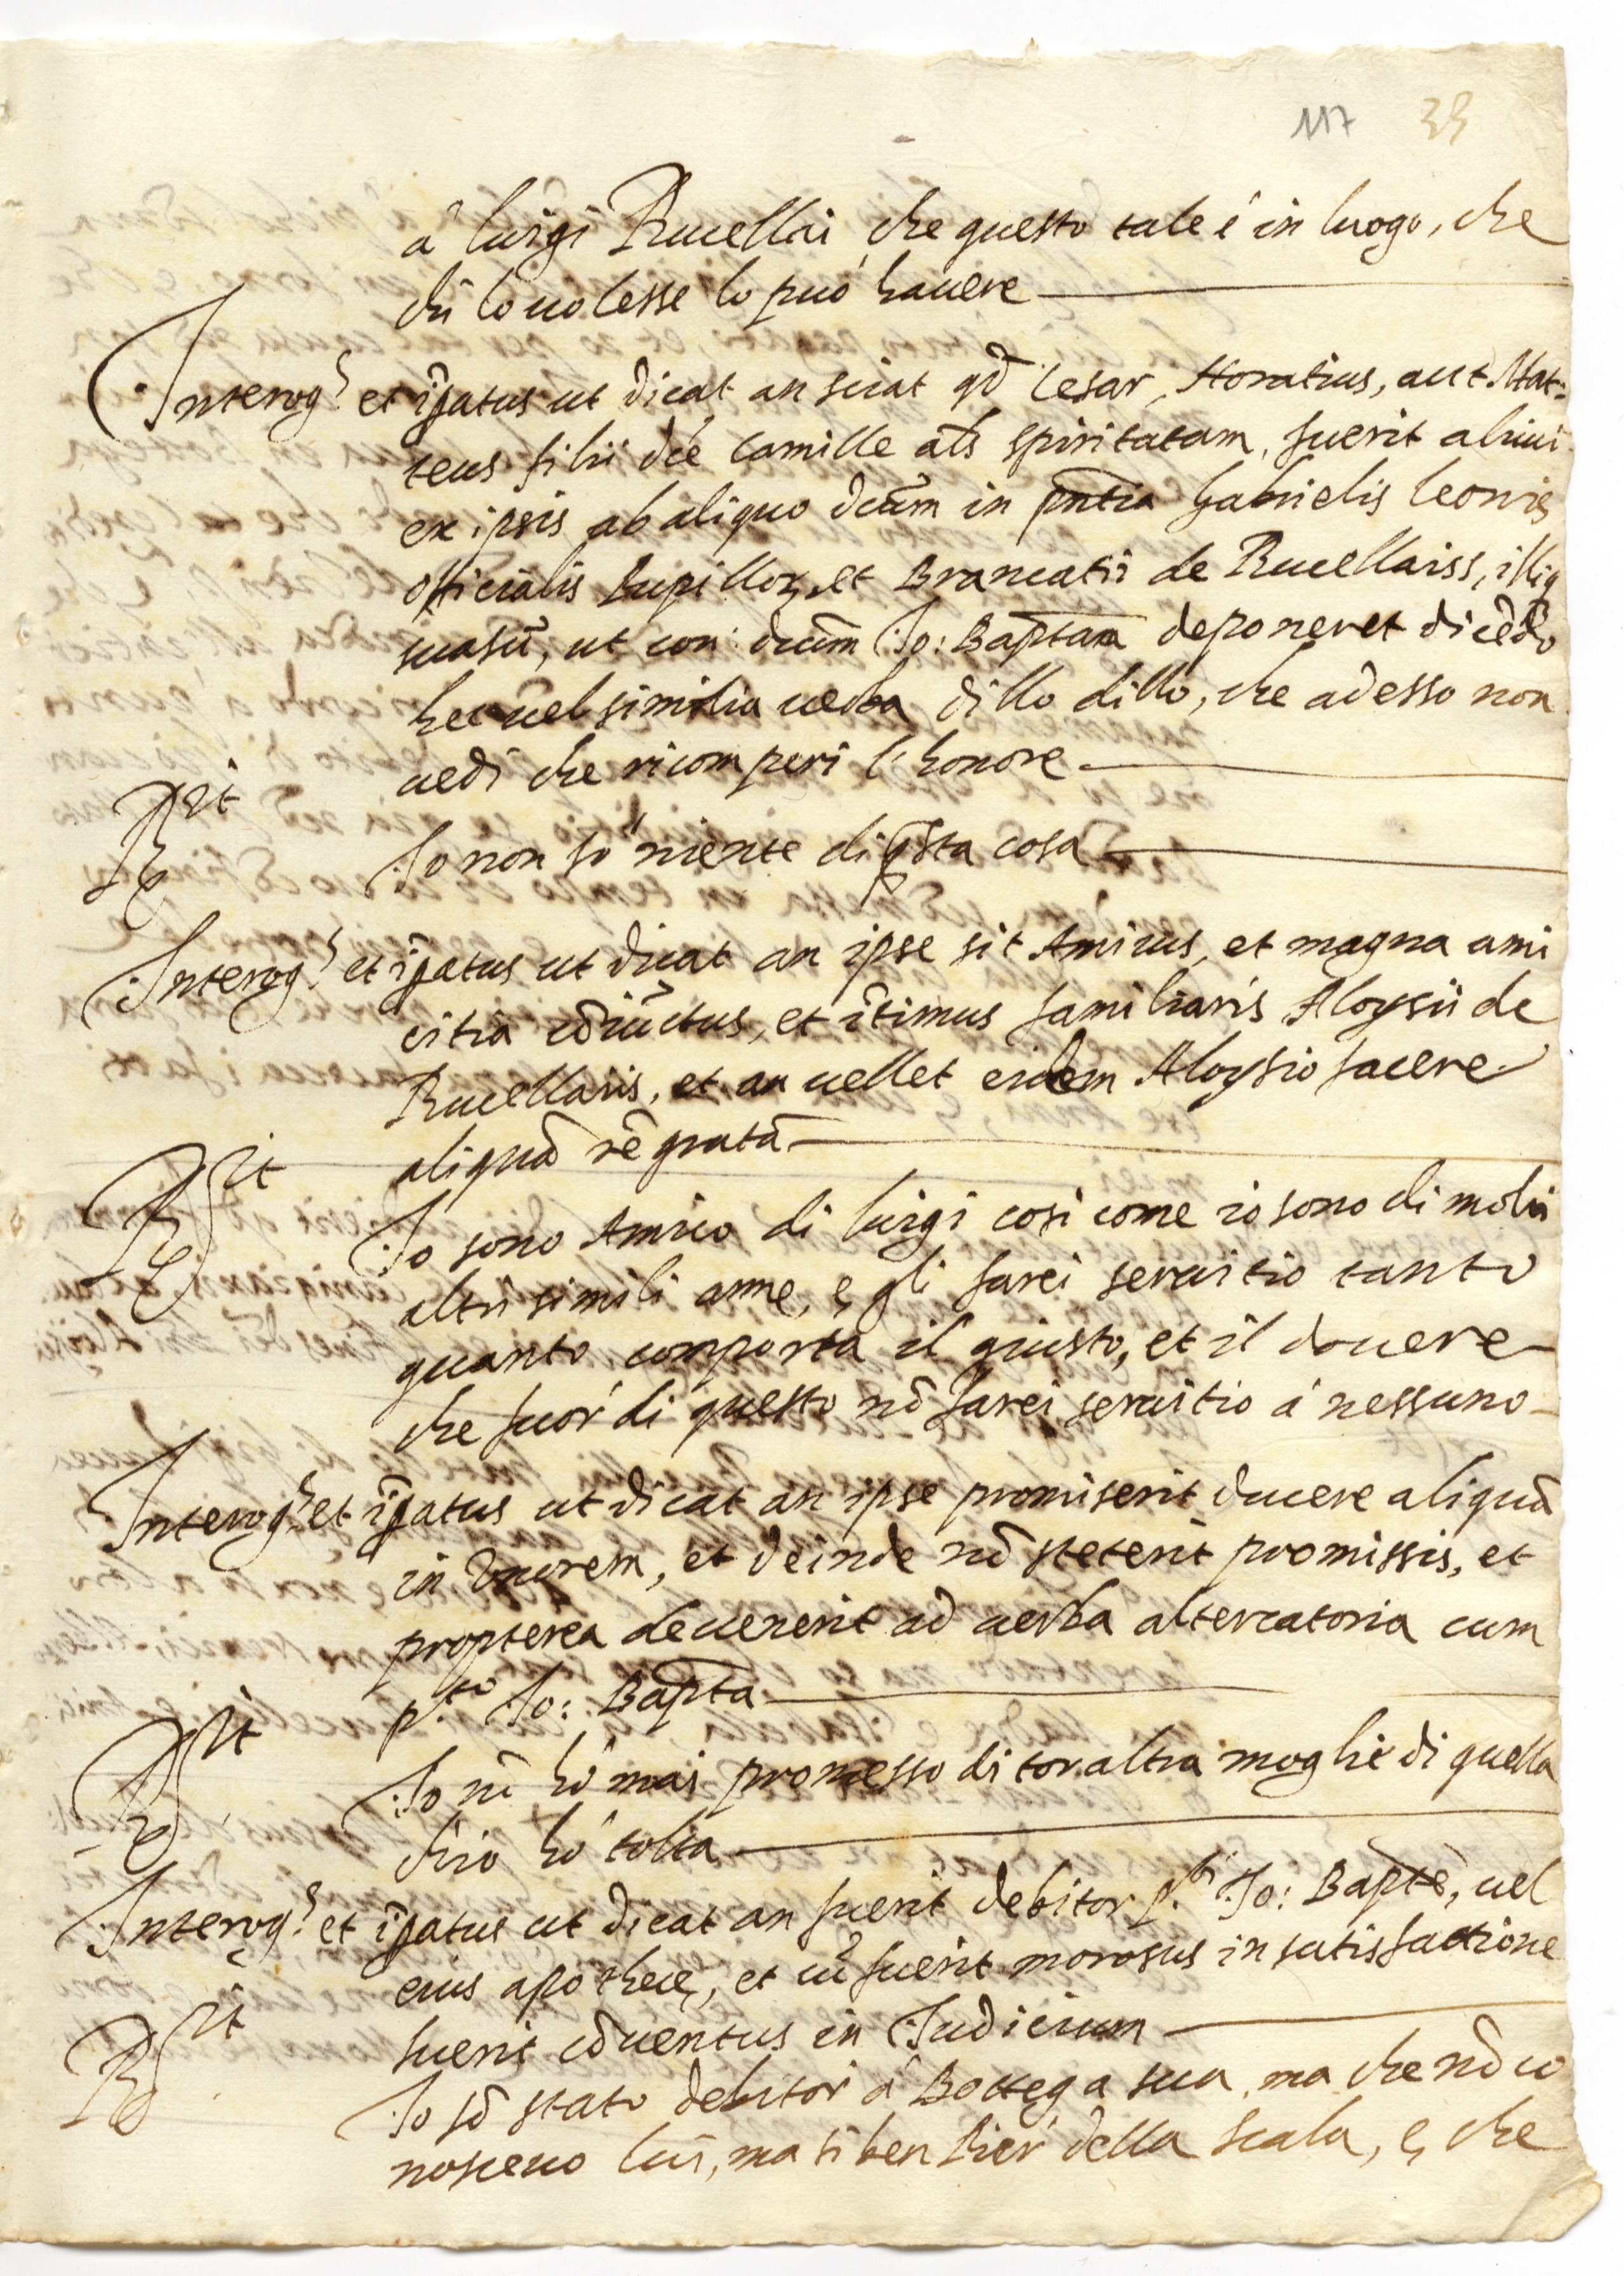 117 33
à luigi Rucellai, che questo tale é in luogo, che
chi lo uolesse lo può hauere
Interog.s et iȷatus ut dicat an sciat qd Cesar, Horatius, aut Mat:
teus filii dce Camille als spiritatam, fuerit alicui
ex ipsis ab aliquo dcum in pntia Gabrielis leonis
officialis Pupilloꝝ et Brancatii de Rucellaiss, illiq
suasu, ut con: dcum Jo: Baptam deponeret dicēdo
hec uel similia uerba dillo dillo, che adesso non
uedi che ricomperi l'honore
Rdit
Jo non so niente di qsta cosa
Interog.s et iȷatus ut dicat an ipse sit Amicus, et magna ami
citia cōiūctus, et ītimus familiaris Aloysii de
Rucellaris, et an uellet eidem Aloysio facere
aliquā rē gratā
Rdit
Jo sono Amico di luigi cosi come io sono di molti
altri simili a me, e gli farei seruitio tanto
quanto comporta il giusto, et il douere
che fuor di questo nō farei seruitio à nessuno
Interog.s et iȷatus ut dicat an ipse promiserit ducere aliquā
in Vxorem, et deinde nō steterit promissis, et
propterea deuenerit ad uerba altercatoria cum
p.to Jo: Bapta
Rdit
Jo nō hò mai promesso di tor altra moglie di quella
ch'io hò tolta
Interog.s et iȷatus ut dicat an fuerit debitor p.ti Jo: Bapte, uel
eius apothece, et cū fuerit morosus in satisfactione
fuerit cōuentus in Judicium
Rdit
Jo sō stato debitor à Bottega sua, ma che nō co
nosceuo lui, ma si ben Pier della Scala, e che